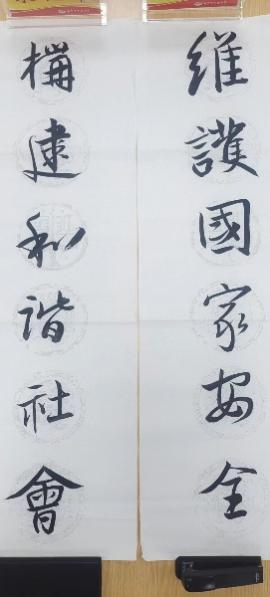 維護國家安全
構建和谐社會